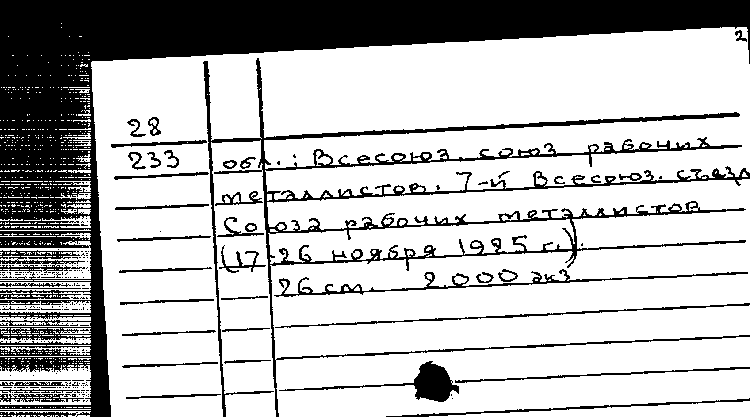 2
28
233 обл.: Всесоюз. союз рабочих
металлистов. 7-й Всесоюз. съезд
Союза рабочих металлистов
(17-26 ноября 1925 г.).
26 cm. 2.000 экз